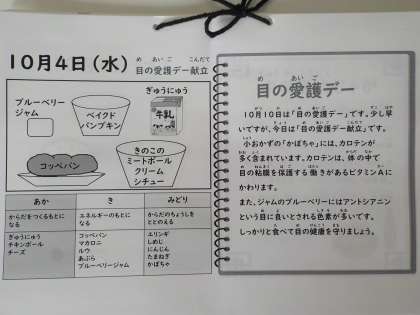 10月4日(水) 目の愛護デー献立
め あいご こんだて
ブルーベリー
ジャム
ベイクド
パンプキン
ぎゅうにゅう
牛乳
コッペパン
きのこの
ミートボール
クリーム
シチュー
あか き みどり
からだをつくるもとに
なる
エネルギーのもとに
なる
からだのちょうしを
ととのえる
ぎゅうにゅう
チキンボール
チーズ
コッペパン
マカロニ
ルウ
あぶら
ブルーベリージャム
エリンギ
しめじ
にんじん
たまねぎ
かぼちゃ
め あい ご
目の愛護デー
10月10日は「目の愛護デー」です。少し早
いですが、今日は「目の愛護デー献立」です。
小おかずの「かぼちゃ」には、カロテンが
多く含まれています。カロテンは、体の中で
目の粘膜を保護する働きがあるビタミンAに
かわります。
また、ジャムのブルーベリーにはアントシアニン
という目に良いとされる色素が多いです。
しっかりと食べて目の健康を守りましょう。